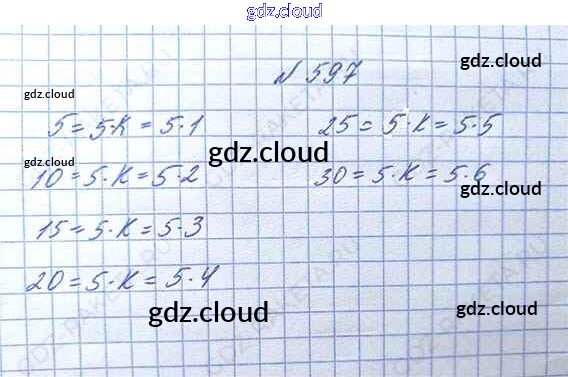 gdz.cloud
№ 597
gdz.cloud
gdz.cloud
5 = 5·К = 5·1
25 = 5·К = 5·5
gdz.cloud
gdz.cloud
10 = 5·К = 5·2
30 = 5·К = 5·6
gdz.cloud
15 = 5·К = 5·3
20 = 5·К = 5·4
gdz.cloud
gdz.cloud
gdz.cloud